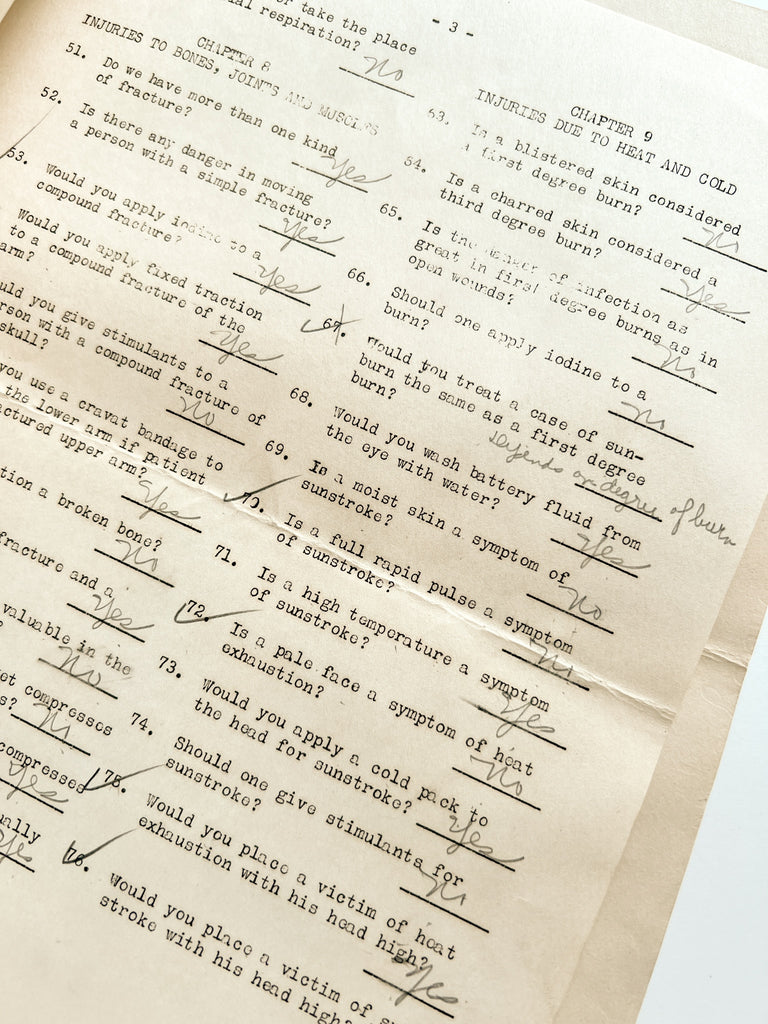 - 3 -
or take the place
al respiration?
No
CHAPTER 8
INJURIES TO BONES, JOINTS AND MUSCLES
51. Do we have more than one kind
of fracture?
Yes
52. Is there any danger in moving
a person with a simple fracture?
Yes
53. Would you apply iodine to a
compound fracture?
Yes
Would you apply fixed traction
to a compound fracture of the
arm?
Yes
uld you give stimulants to a
rson with a compound fracture of
skull?
No
you use a cravat bandage to
the lower arm if patient
actured upper arm?
Yes
tion a broken bone?
No
fracture and a
Yes
valuable in the
?
No
et compresses
s?
No
compresses
Yes
ually
Yes
CHAPTER 9
INJURIES DUE TO HEAT AND COLD
63. Is a blistered skin considered
a first degree burn?
No
64. Is a charred skin considered a
third degree burn?
Yes
65. Is the danger of infection as
great in first degree burns as in
open wounds?
No
66. Should one apply iodine to a
burn?
No
67. Would you treat a case of sun-
burn the same as a first degree
burn?
depends on degree of burn
68. Would you wash battery fluid from
the eye with water?
Yes
69. Is a moist skin a symptom of
sunstroke?
No
70. Is a full rapid pulse a symptom
of sunstroke?
No
71. Is a high temperature a symptom
of sunstroke?
Yes
72. Is a pale face a symptom of heat
exhaustion?
No
73. Would you apply a cold pack to
the head for sunstroke?
Yes
74. Should one give stimulants for
sunstroke?
No
75. Would you place a victim of heat
exhaustion with his head high?
Yes
76. Would you place a victim of s
stroke with his head high?